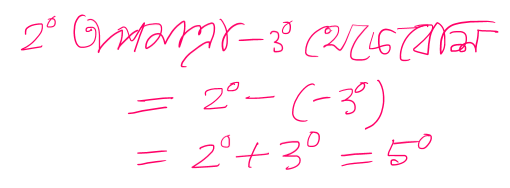 2° তাপমাত্রা -3° থেকে বেশি
= 2° - (-3°)
= 2° + 3° = 5°